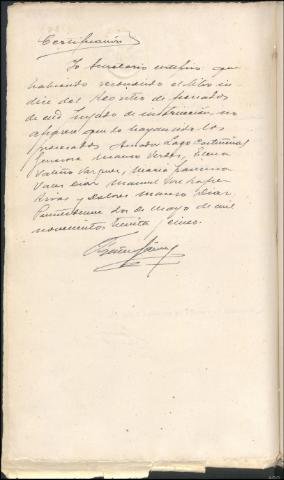 Certificación
Yo Secretario certifico: que
habiendo reconocido el libro ín-
dice del Registro de penados
de este Juzgado de instrucción, no
aparece que lo hayan sido los
procesados Amador Lago
Generosa Manso Verdes, Elena
Valiño Vázquez, María
Manuel José
Rivas y Dolores Manso
Puentedeume dos de Mayo de mil
novecientos treinta y cinco.